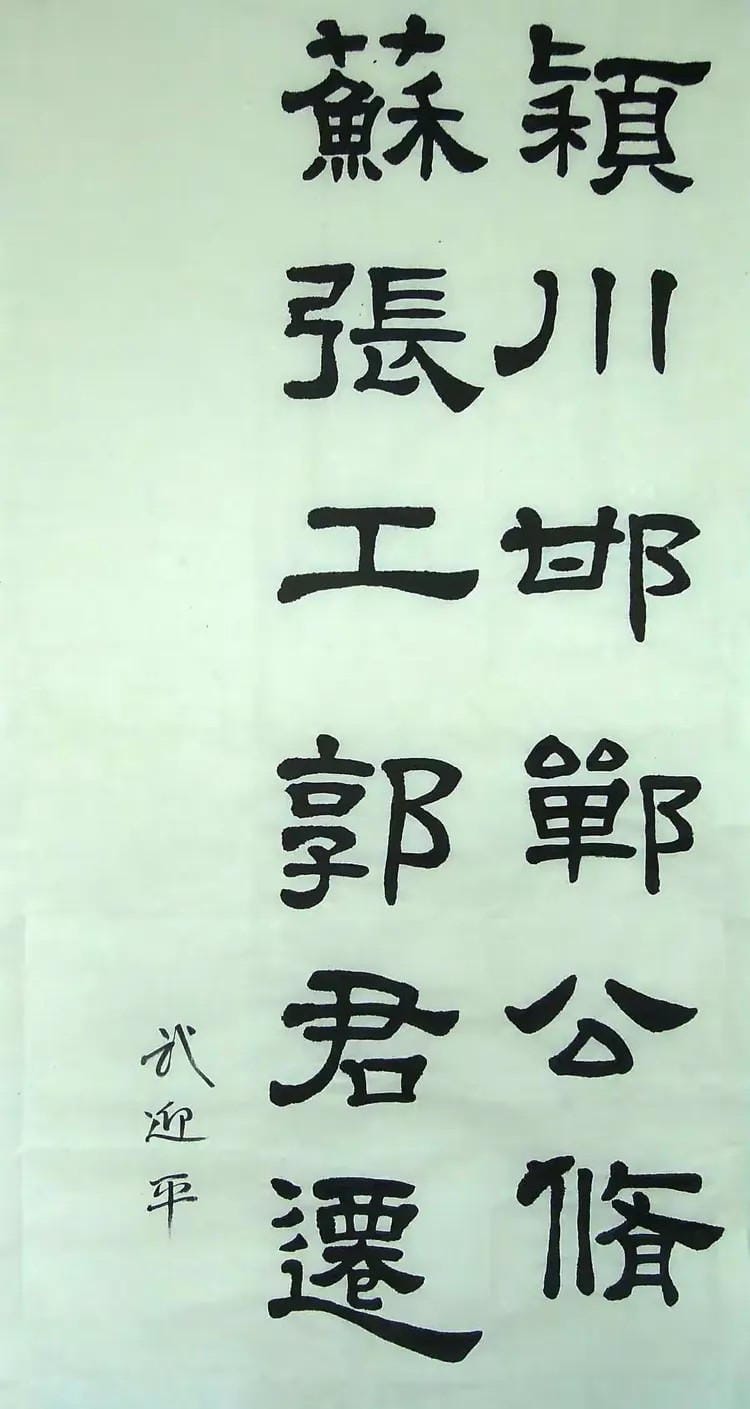 穎川邯鄲公脩
蘇張工郭君遷
武迎平